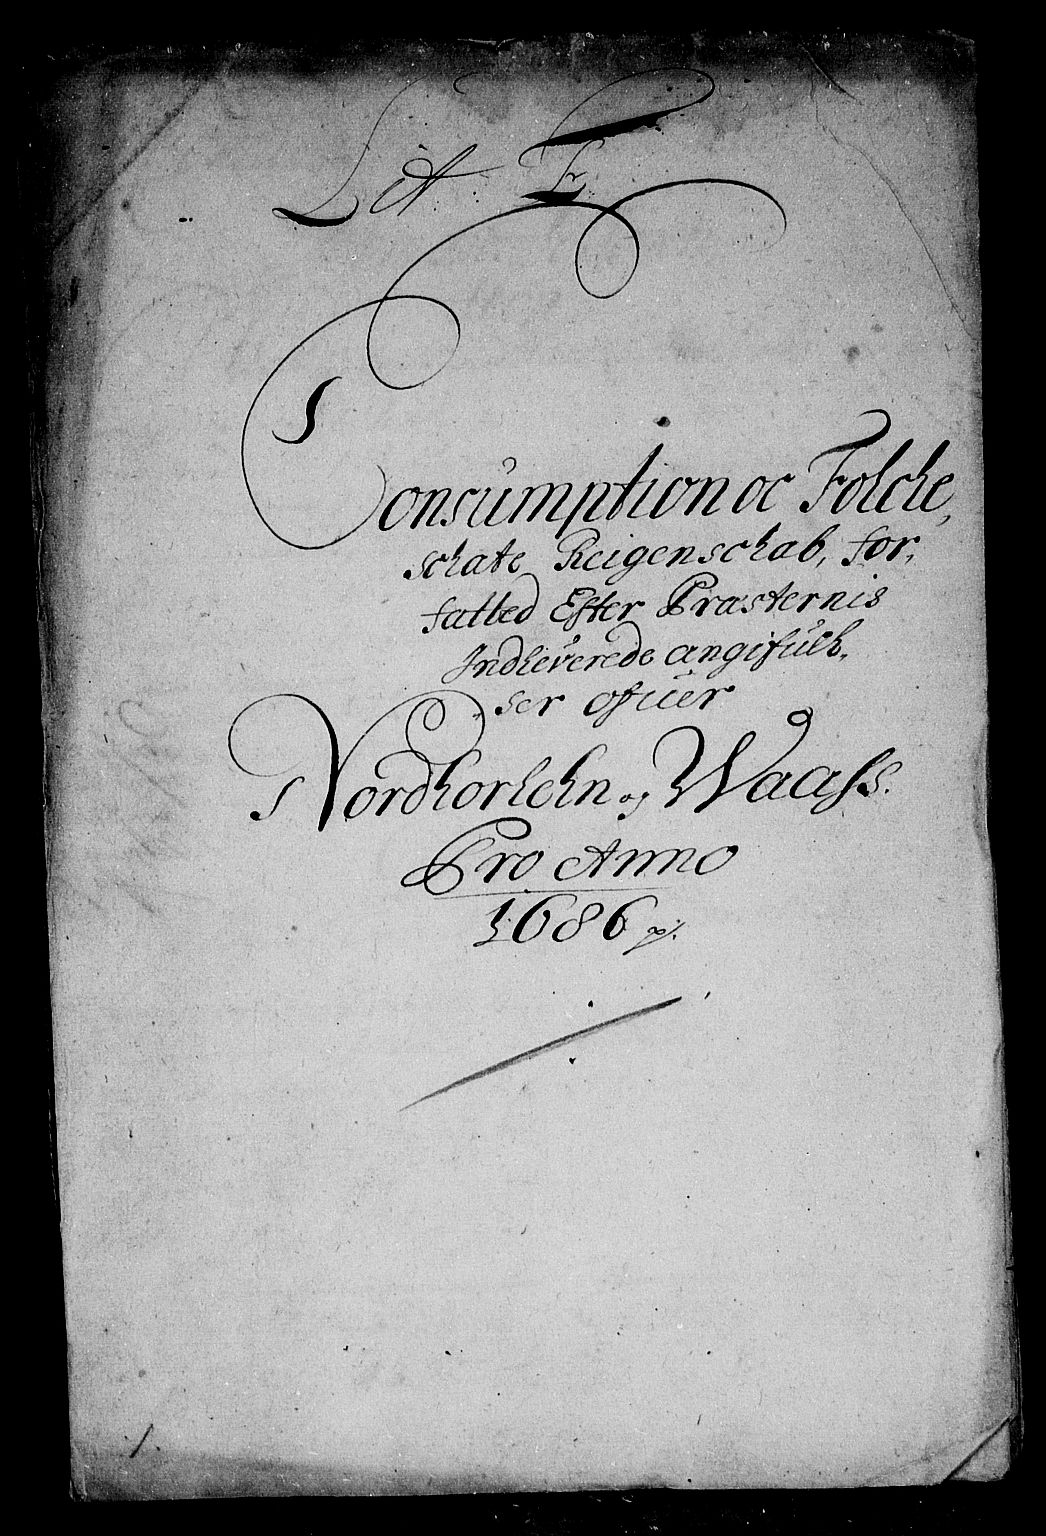 Lit F
Consumption oc Folche,
schate Reigenschab, for,
fatted Efter Præsternis
Indleverede angifuelh,
ser ofuer
Nordhorlehn og Waass.
Pro Anno
1686
1.